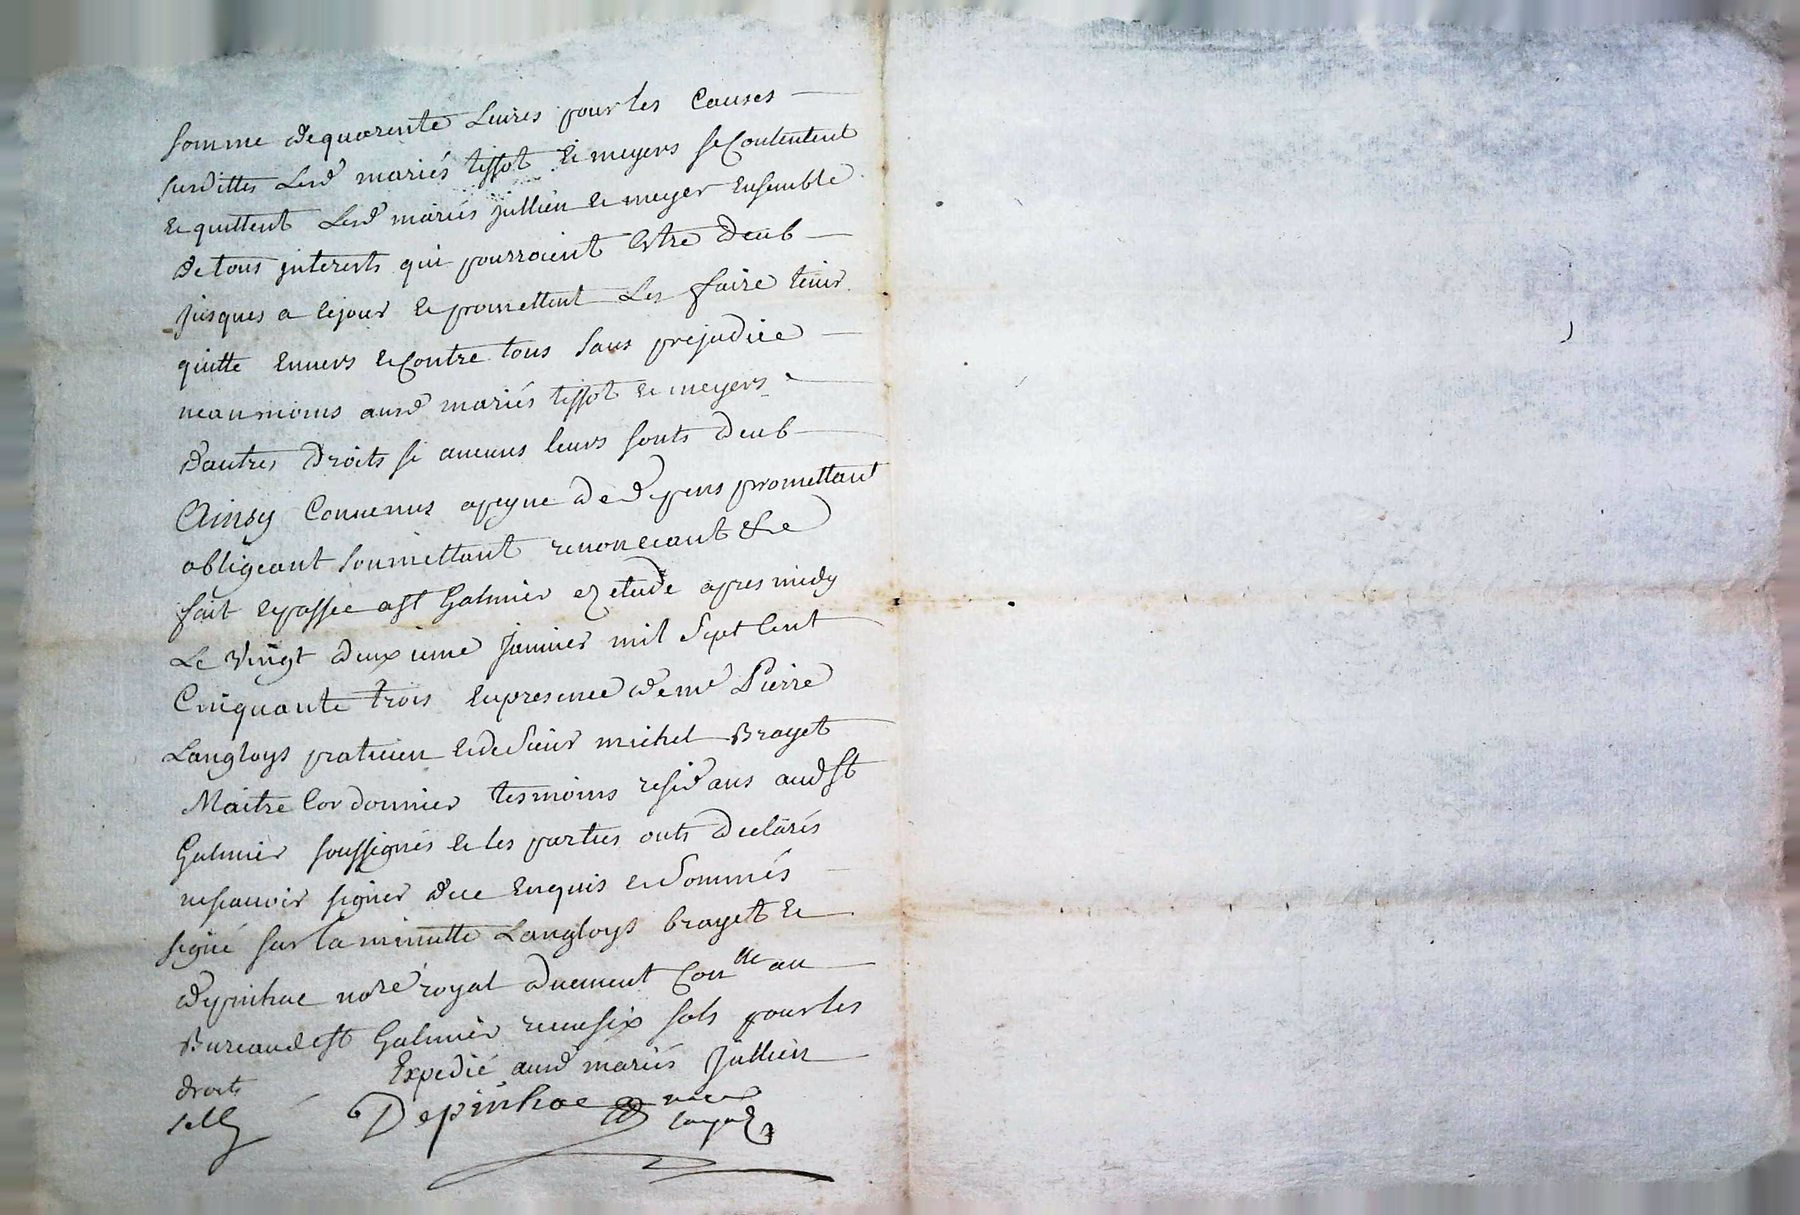 somme de quarente livres pour les causes
susdittes lesd mariés tissot et meyers se contentent
et quittent lesd mariés jullien et meyer ensemble
de tous jnterests qui pourroient estre deub
jusques a cejour et promettent les faire tenir
quitte envers et contre tous sans prejudice
neanmoins ausd mariés tissot et meyers
dautres droits si aucuns leurs sonts deub
Ainsy convenus apeyne de d pens promettant
obligeant soumettant renonceant &c
fait et passée a st Galmier ez etude apres midy
Le vingt deuxieme janvier mil sept cent
Cinquante trois en presence de me Pierre
Langloys praticien et de sieur michel Brayet
Maitre cordonnier tesmoins residans aud st
Galmier soussignés et les parties onts declarés
nescavoir signer de ce enquis et sommés
signé sur la minutte Langloys brayet et
depinhac nore royal duement con lle au
Bureau de st Galmier receu six sols pour les
droits Expedié ausd mariés Jullien
sell Depinhac